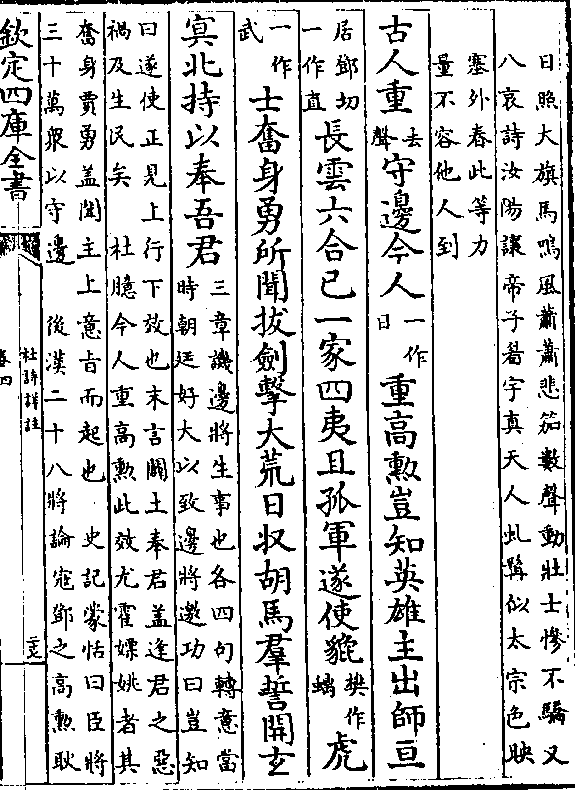 日照大旗馬鳴風蕭蕭悲笳數聲動壯士慘不驕又
八哀詩汝陽讓帝子眉宇真天人虬鬚似太宗色映
塞外春此等力
量不容他人到
古人重去聲守邊今人一作日重高勲豈知英雄主出師亘
居鄧切一作直長雲六合已一家四夷且孤軍遂使貔樊作螭虎
一作武士奮身勇所聞拔劍擊大荒日收胡馬羣誓開玄
冥北持以奉吾君三章譏邊將生事也各四句轉意當
時朝廷好大以致邊將邀功曰豈知
曰遂使正見上行下效也末言闢土奉君盖逢君之惡
禍及生民矣 杜臆今人重高勲此效尤霍嫖姚者其
奮身賈勇盖聞主上意旨而起也 史記蒙恬曰臣將
三十萬衆以守邊 後漢二十八將論寇鄧之高勲耿
欽定四庫全書
杜詩詳註
卷四